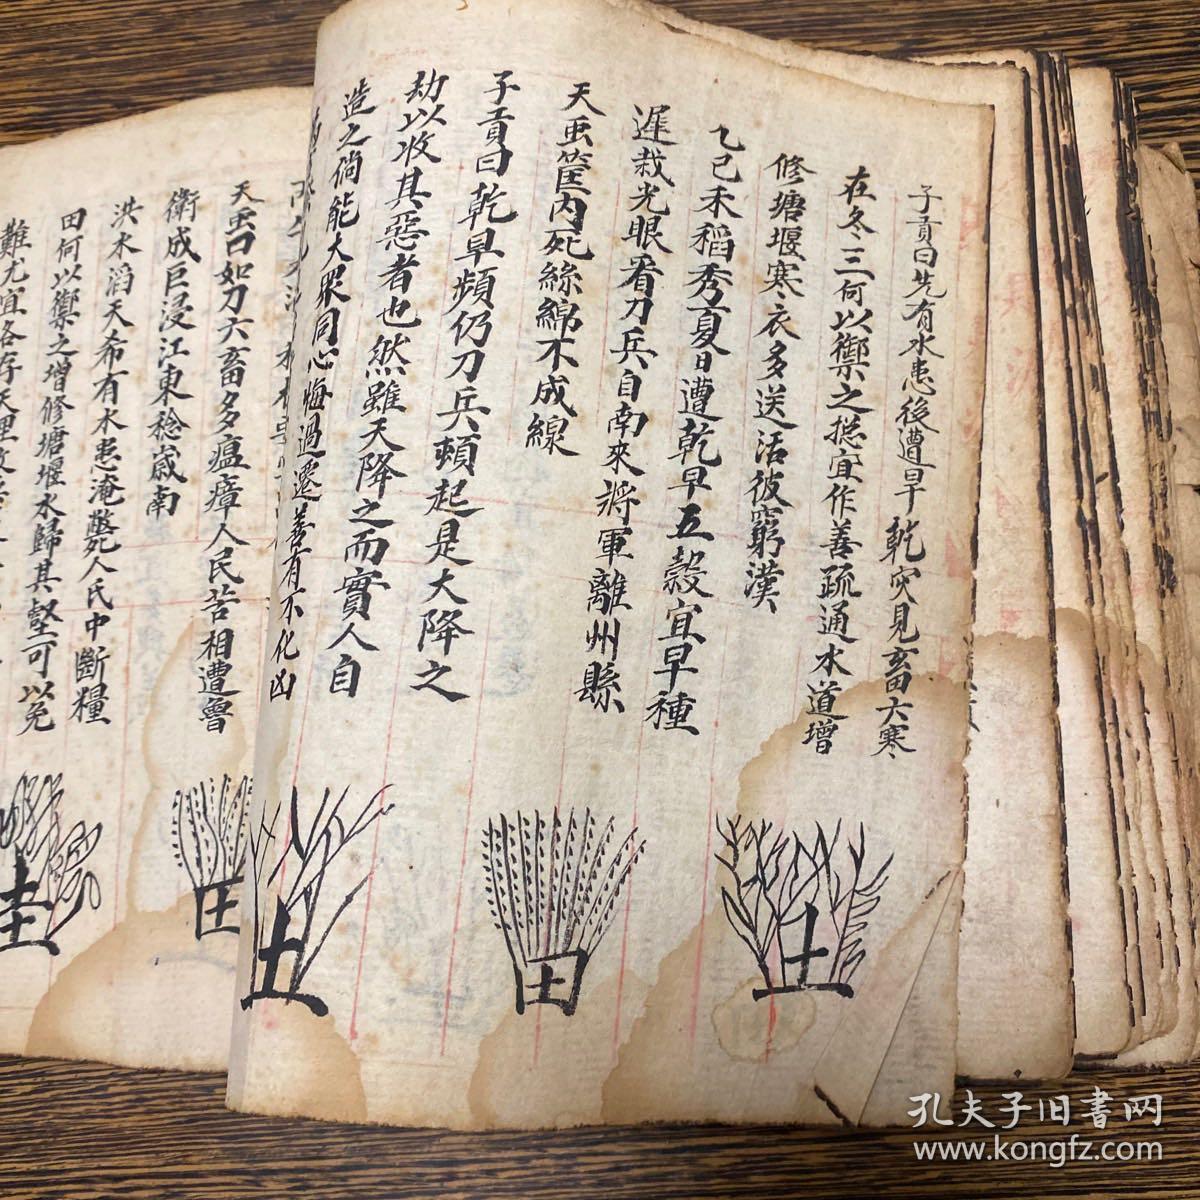 子貢曰先有水患後遭旱乾灾見畜六寒
在冬三何以禦之揔宜作善疏通水道增
修塘堰寒衣多送活彼窮漢
乙己禾稻秀夏日遭乾旱五穀宜早種
遲栽光眼看刀兵自南來將軍離州縣
天虫筐内死絲綿不成線
子貢曰乾旱頻仍刀兵頓起是大降之
劫以收其惡者也然雖天降之而實人自
造之倘能大眾同心悔過遷善有不化凶
天虫口如刀六畜多瘟瘴人民苦相遭魯
衛成巨浸江東稔歲南
洪水滔天希有水患淹斃人民中斷糧
田何以禦之增修塘堰水歸其壑可以免
難尤宜各存天理
孔夫子旧書网
www.kongfz.com